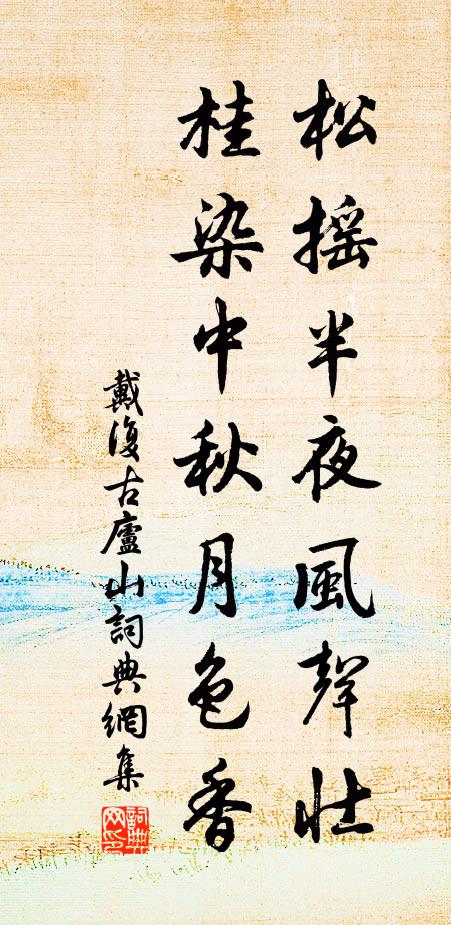 松搖半夜風聲壯
桂染中秋月色香
戴復古廬山詞典網集
詞典网印